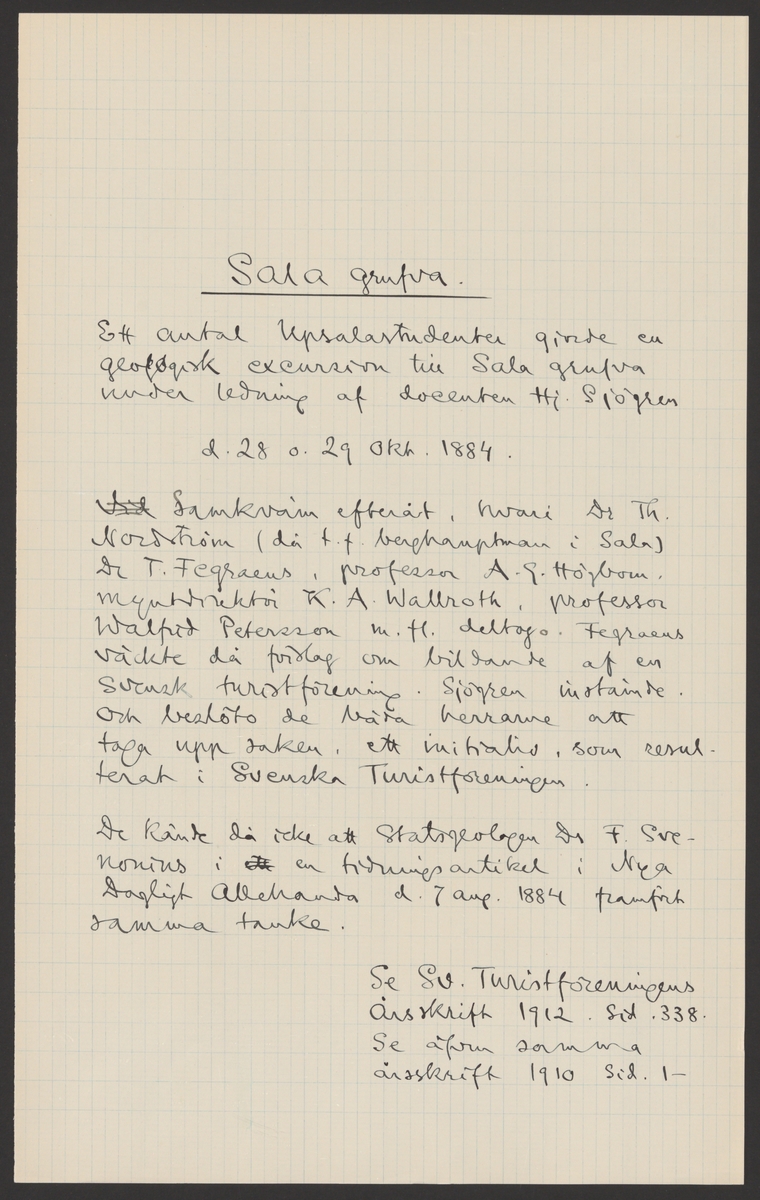 Sala grufva.
Ett antal Upsalastudenter gjorde en
geologisk excursion till Sala grufva
under ledning af docenten Hj. Sjögren
d. 28 o. 29 Okt. 1884.
Vid Samkväm efteråt, hvari Dr Th.
Nordström (då t.f. berghauptman i Sala)
Dr T. Fegraeus, professor A. G. Högbom,
myntdirektör K. A. Wallroth, professor
Walfrid Petersson m. fl. deltogo. Fegraeus
väckte då förslag om bildande af en
svensk turistförening. Sjögren instämde.
Och beslöto de båda herrarne att
taga upp saken, ett initiativ, som resul-
terat i Svenska Turistföreningen.
De kände då icke att Statsgeologen Dr F. Sve-
nonius i ett en tidningsartikel i Nya
Dagligt Allehanda d. 7 aug. 1884 framfört
samma tanke.
Se Sv. Turistföreningens
Årsskrift 1912. Sid. 338.
Se äfven samma
årsskrift 1910 Sid. 1–